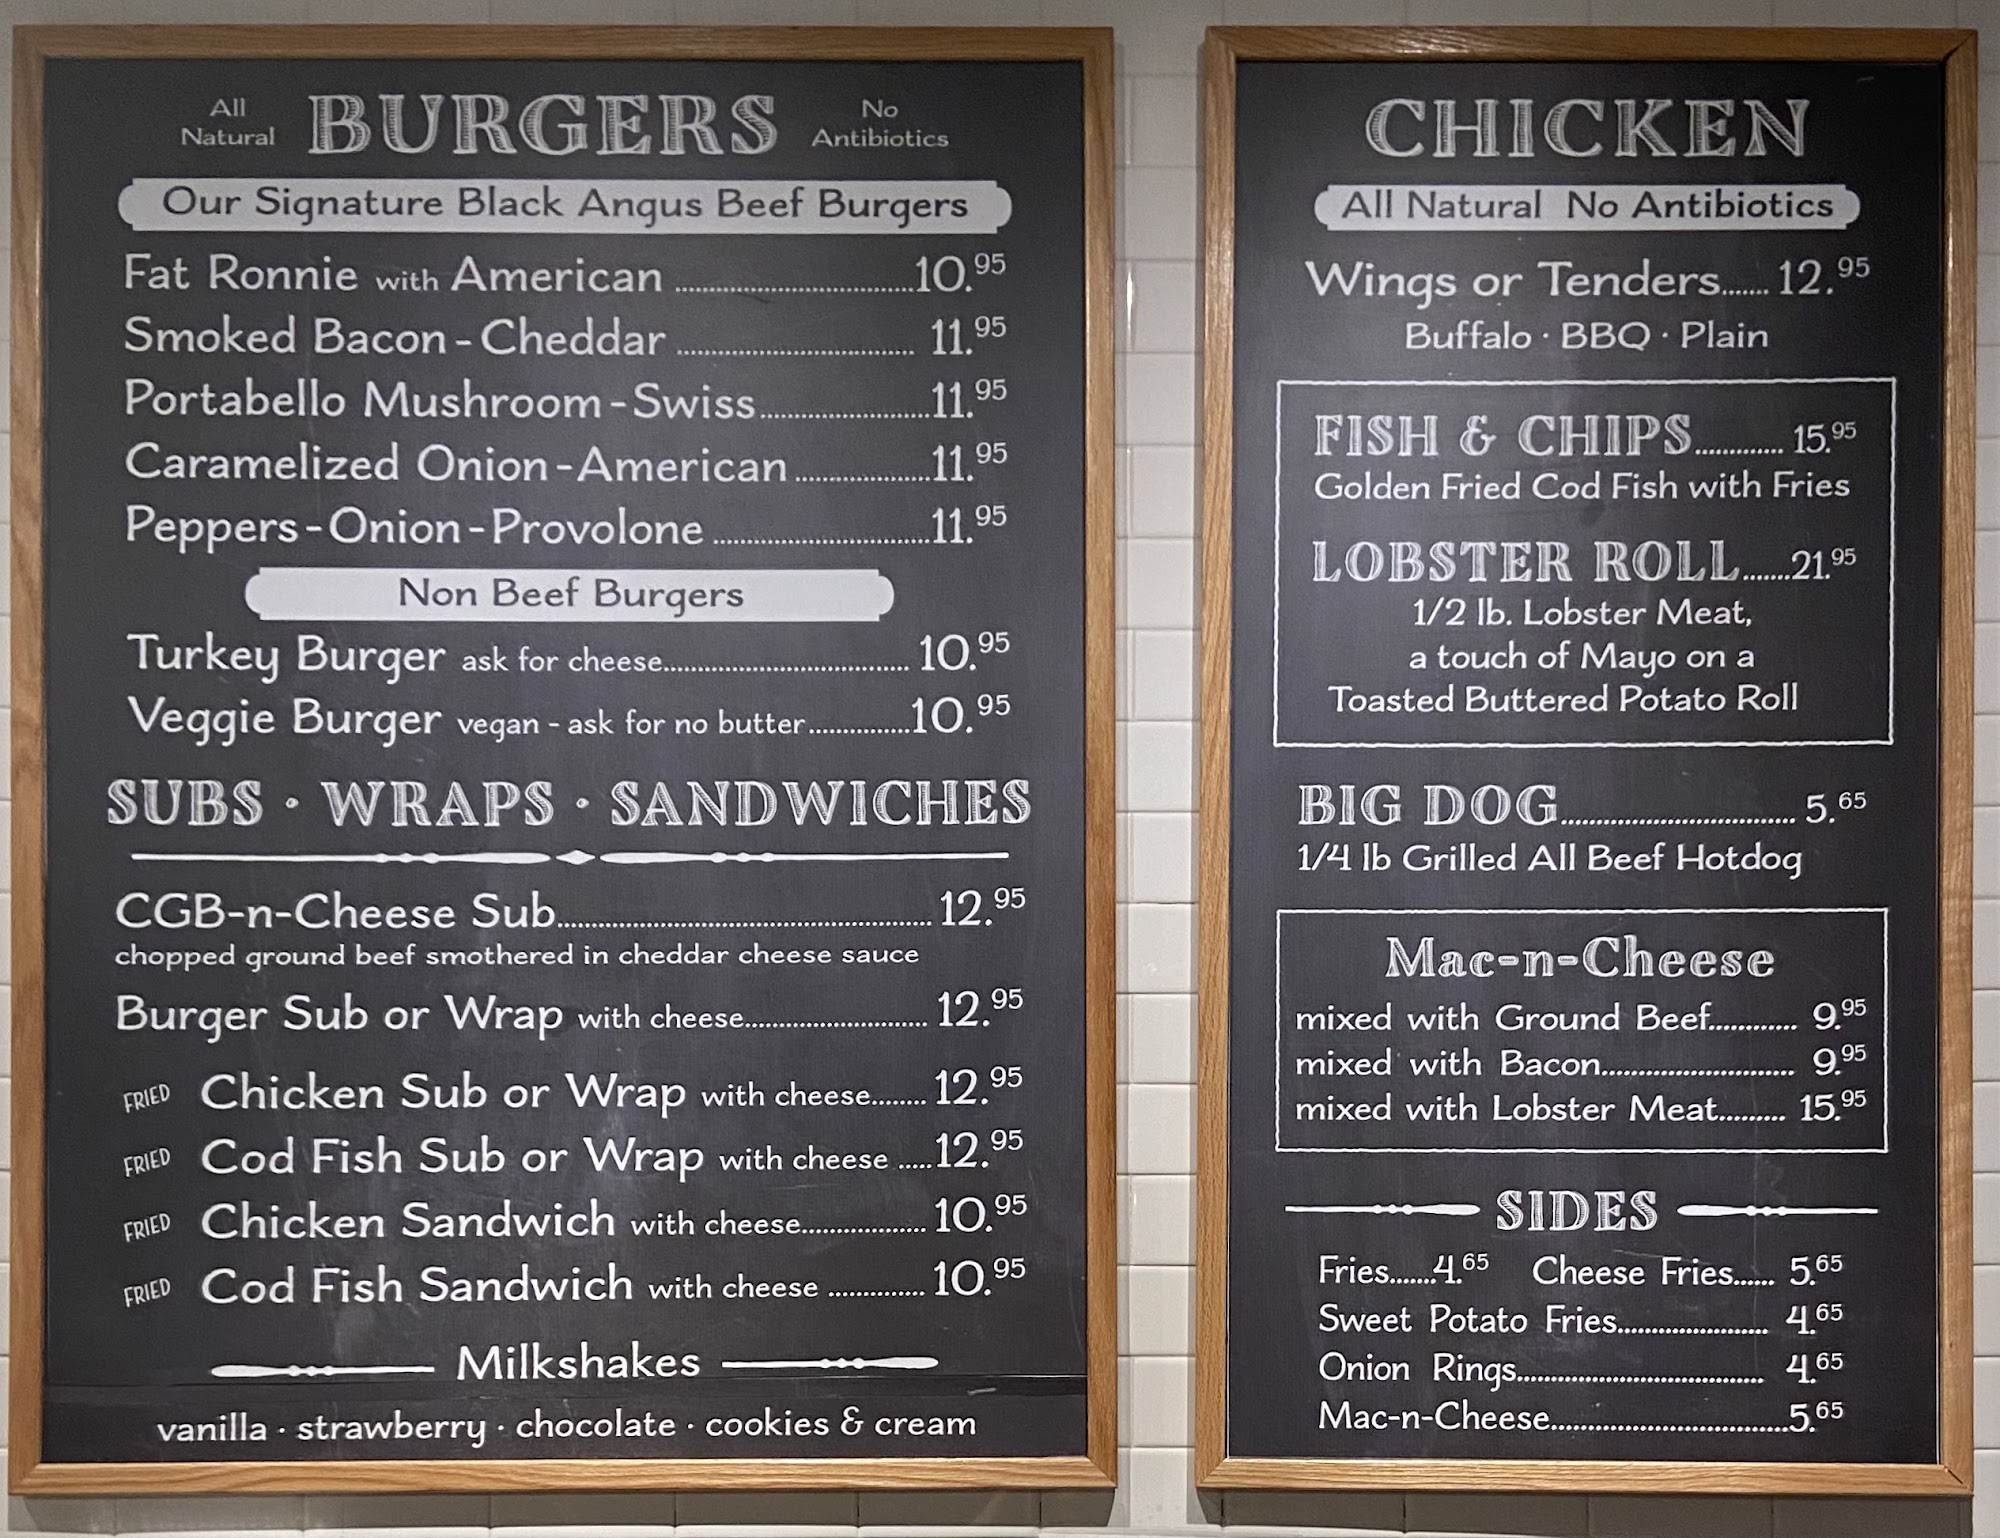 All Natural BURGERS No Antibiotics
Our Signature Black Angus Beef Burgers
Fat Ronnie with American ........ 10.95
Smoked Bacon - Cheddar ........ 11.95
Portabello Mushroom - Swiss ........ 11.95
Caramelized Onion - American ........ 11.95
Peppers - Onion - Provolone ........ 11.95
Non Beef Burgers
Turkey Burger ask for cheese ........ 10.95
Veggie Burger vegan - ask for no butter ........ 10.95
SUBS · WRAPS · SANDWICHES
CGB-n-Cheese Sub ........ 12.95
chopped ground beef smothered in cheddar cheese sauce
Burger Sub or Wrap with cheese ........ 12.95
FRIED Chicken Sub or Wrap with cheese ........ 12.95
FRIED Cod Fish Sub or Wrap with cheese ..... 12.95
FRIED Chicken Sandwich with cheese ........ 10.95
FRIED Cod Fish Sandwich with cheese ........ 10.95
Milkshakes
vanilla · strawberry · chocolate · cookies & cream
CHICKEN
All Natural No Antibiotics
Wings or Tenders ....... 12.95
Buffalo · BBQ · Plain
FISH & CHIPS ........ 15.95
Golden Fried Cod Fish with Fries
LOBSTER ROLL ....... 21.95
1/2 lb. Lobster Meat,
a touch of Mayo on a
Toasted Buttered Potato Roll
BIG DOG ........ 5.65
1/4 lb Grilled All Beef Hotdog
Mac-n-Cheese
mixed with Ground Beef ........ 9.95
mixed with Bacon ........ 9.95
mixed with Lobster Meat ........ 15.95
SIDES
Fries ....... 4.65 Cheese Fries ...... 5.65
Sweet Potato Fries ........ 4.65
Onion Rings ........ 4.65
Mac-n-Cheese ........ 5.65